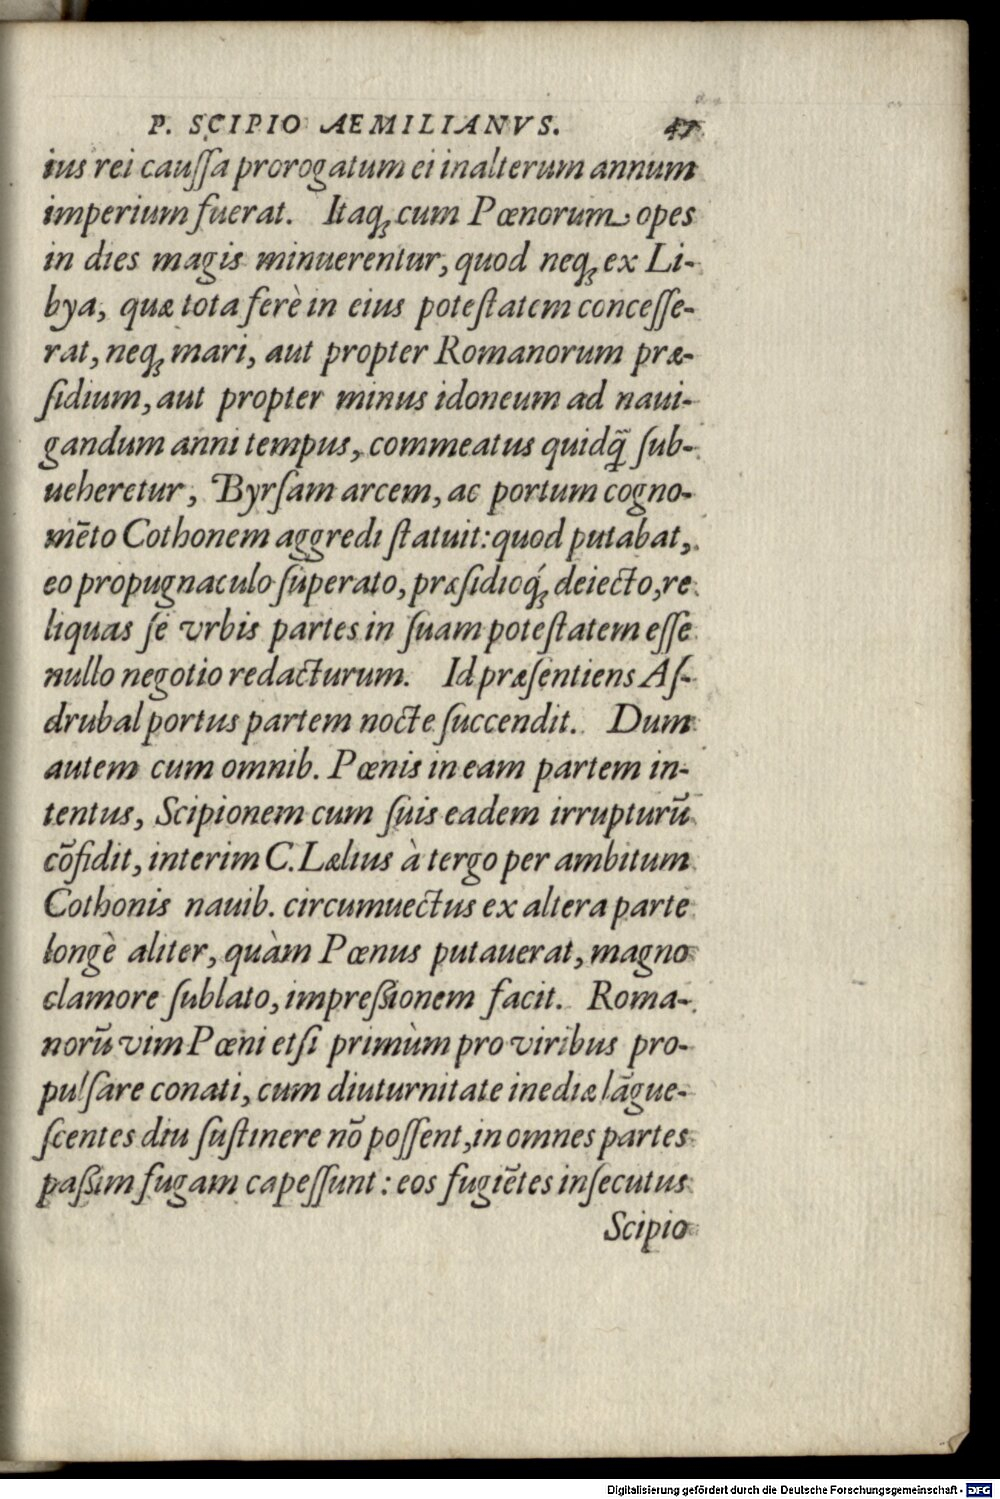 P. SCIPIO AEMILIANVS. 47
ius rei cauſſa prorogatum ei in alterum annum
imperium fuerat. Itaq; cum Pœnorum opes
in dies magis minuerentur, quod neq; ex Li-
bya, quæ tota ferè in eius poteſtatem conceſſe-
rat, neq; mari, aut propter Romanorum præ-
ſidium, aut propter minus idoneum ad naui-
gandum anni tempus, commeatus quidq̃ ſub-
ueheretur, Byrſam arcem, ac portum cogno-
mẽto Cothonem aggredi ſtatuit: quod putabat,
eo propugnaculo ſuperato, præſidioq́; deiecto, re
liquas ſe vrbis partes in ſuam poteſtatem eſſe
nullo negotio redacturum. Id præſentiens Aſ-
drubal portus partem nocte ſuccendit. Dum
autem cum omnib. Pœnis in eam partem in-
tentus, Scipionem cum ſuis eadem irrupturũ
cõfidit, interim C. Lælius à tergo per ambitum
Cothonis nauib. circumuectus ex altera parte
longè aliter, quàm Pœnus putauerat, magno
clamore ſublato, impreßionem facit. Roma-
norũ vim Pœni etſi primùm pro viribus pro-
pulſare conati, cum diuturnitate inediæ lãgue-
ſcentes diu ſuſtinere nõ poſſent, in omnes partes
paßim fugam capeſſunt: eos fugiẽtes inſecutus
Scipio
Digitalisierung gefördert durch die Deutsche Forschungsgemeinschaft - DFG